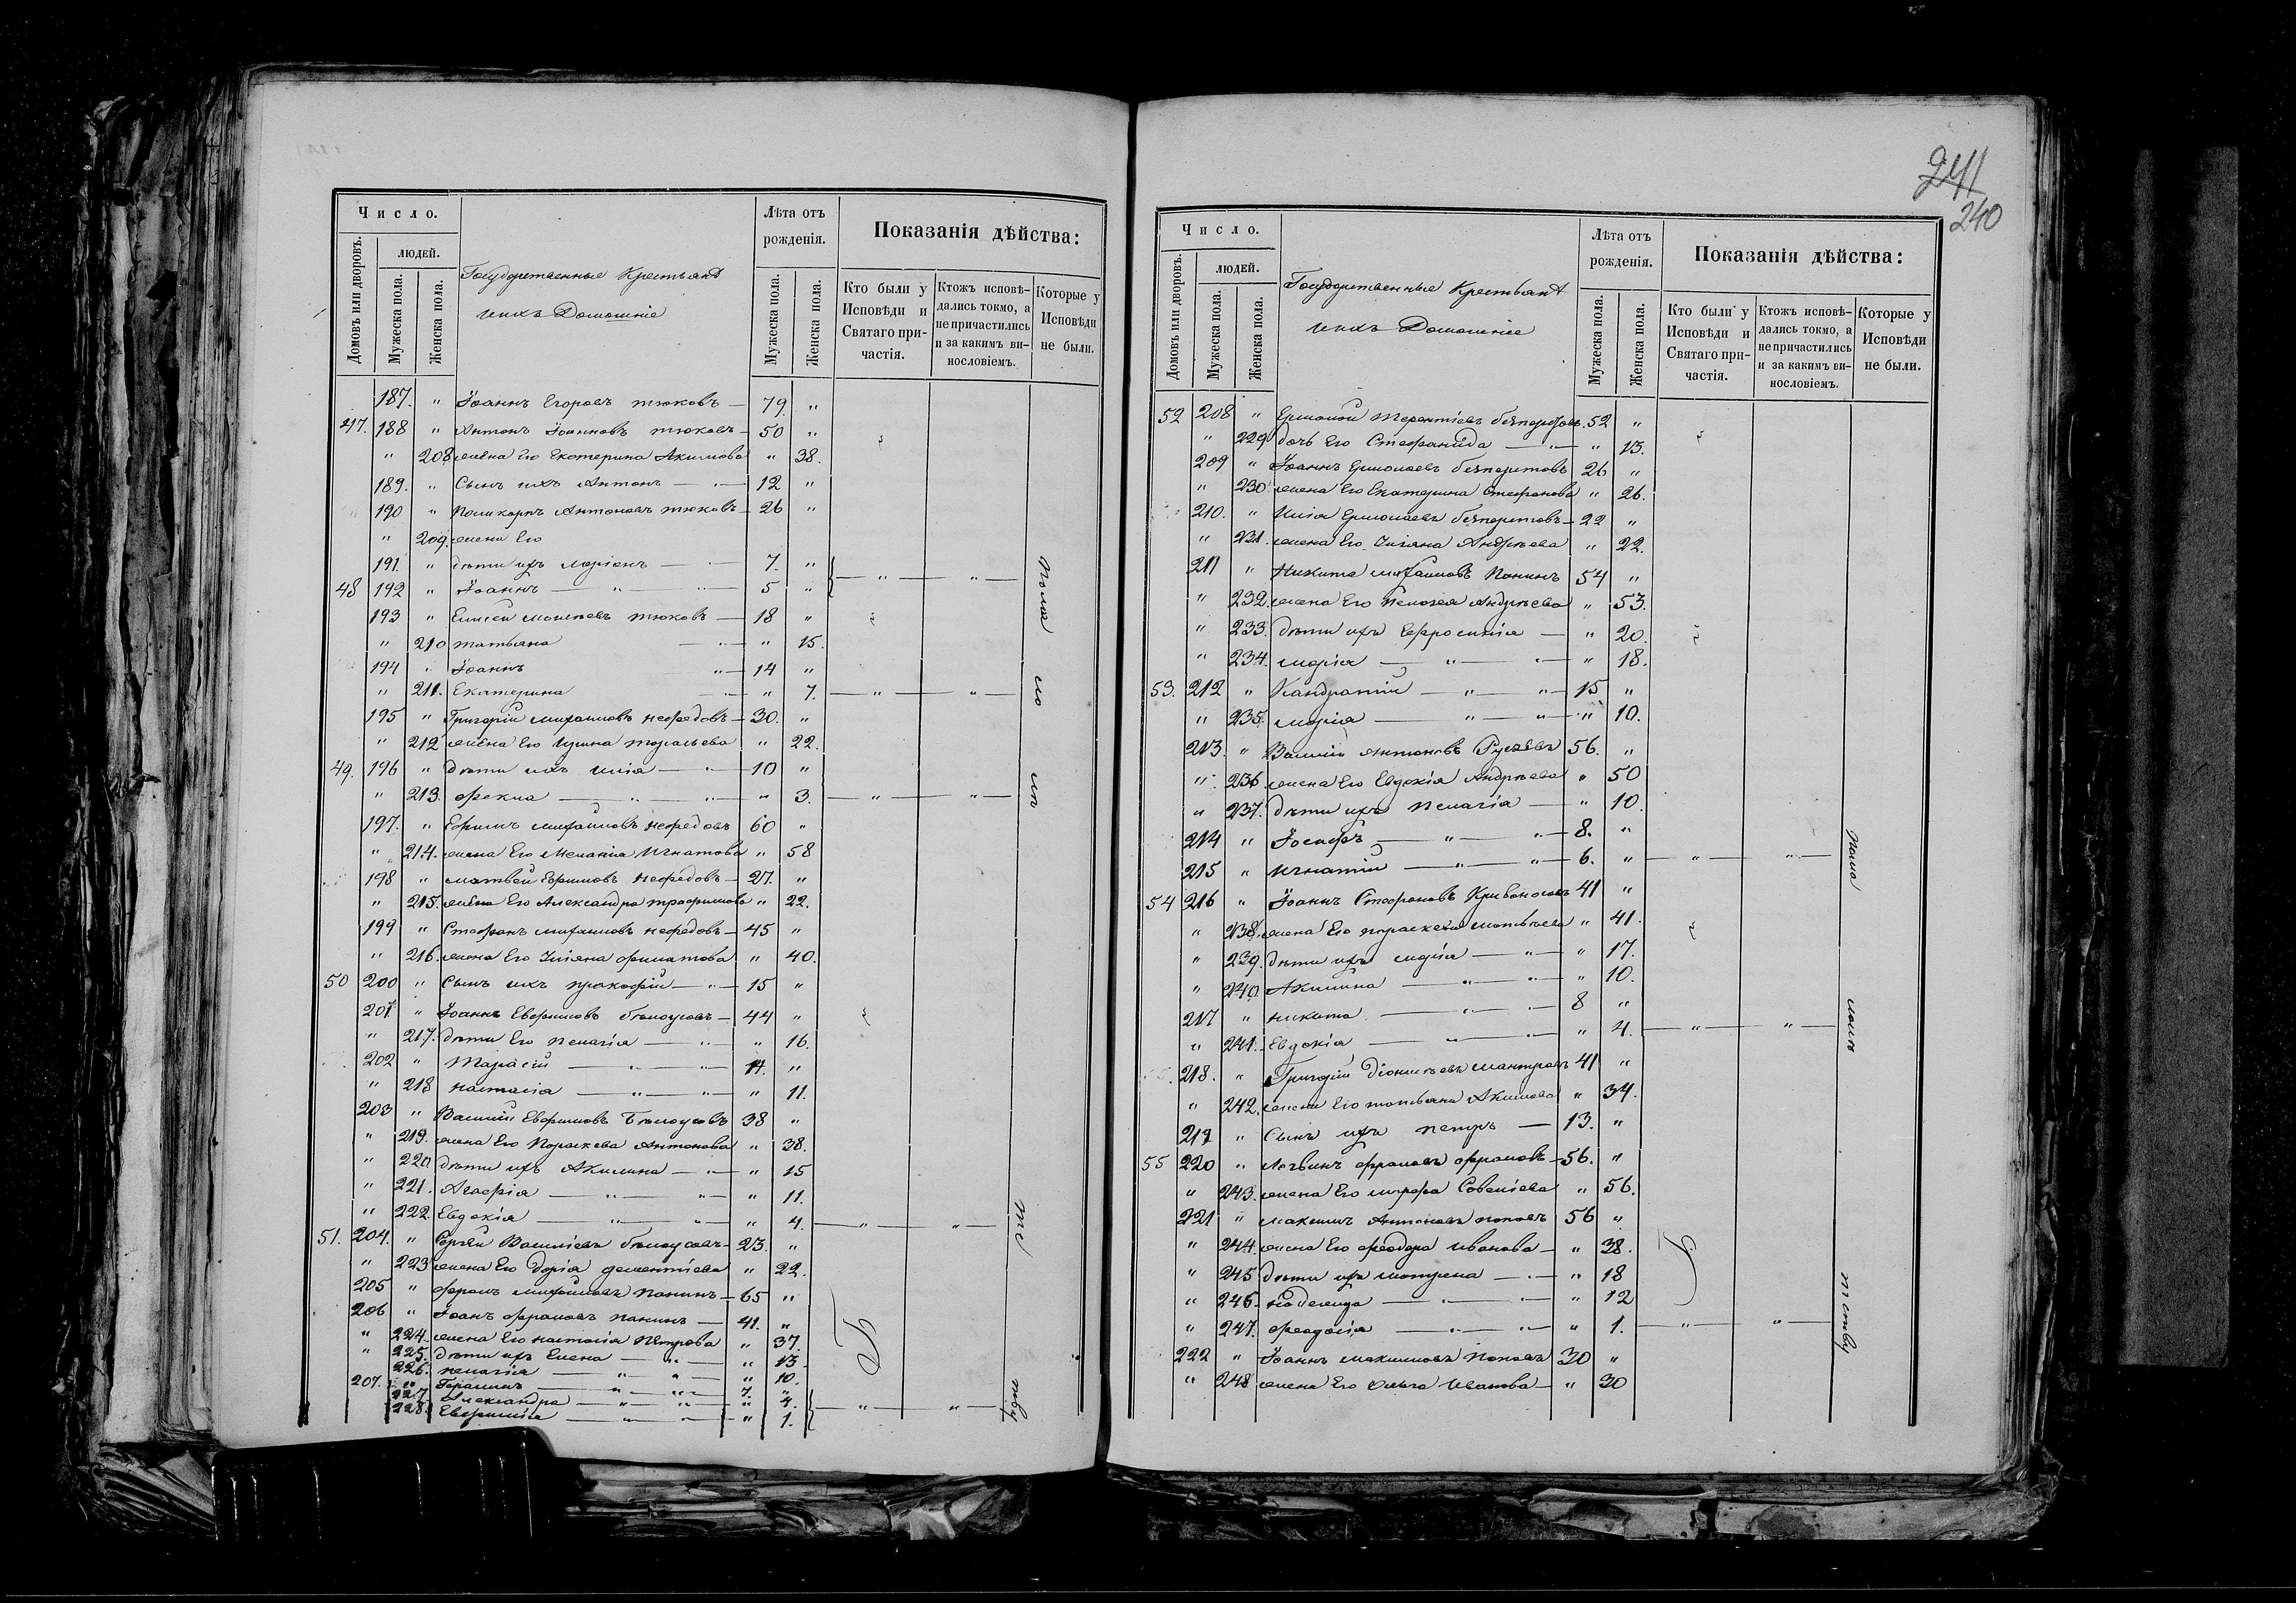 Число.
Домовъ или дворовъ.
людей.
Мужеска пола.
Женска пола.
Государственные Крестьяне
ихъ Домашніе
Лѣта отъ рожденія.
Мужеска пола.
Женска пола.
Показанія дѣйства:
Кто были у Исповѣди и Святаго причастія.
Ктожъ исповѣдались токмо, а не причастились и за какимъ винословіемъ.
Которые у Исповѣди не были.
187. " Іоаннъ Егоровъ тюковъ — 79. "
47. 188 " Антонъ Іоанновъ тюковъ — 50 "
" 208 жена его Екатерина Акимова " 38.
189. " Сынъ ихъ Антонъ — " — 12 "
190 " Поликарпъ Антоновъ тюковъ — 26 "
" 209. жена Его
191 " дѣти ихъ — 7. "
48 192 " Іоаннъ — " — 5 "
193 " Елисей тюковъ — 18 "
" 210 татьяна " — " 15.
194 " Іоаннъ " — 14 "
" 211. Екатерина " — " 7. — " — " —
195 " Григорій михаиловъ нефедовъ — 30. "
" 212 жена Его " 22.
49. 196 " дѣти ихъ илія — " — 10 "
" 213. фекла — " — " — " 3. — " — " —
197. " Ефимъ михаиловъ нефедовъ 60 "
" 214. жена Его Меланія Игнатова " 58
198 " матвей Ефимовъ нефедовъ — 27. "
" 215. жена Его Александра трофимова " 22.
199 " Стефанъ михаиловъ нефедовъ — 45 "
" 216. жена Его Уліяна филатова " 40.
50 200 " Сынъ ихъ прокофій — " — 15 "
201. " Іоаннъ Евфимовъ бѣлоусовъ — 44 "
" 217. дѣти Его пелагія — " — " 16.
202 " Тарасій — " — " — 14. "
" 218 настасія — " — " — " 11.
203 " Василій Евфимовъ Бѣлоусовъ 38 "
" 219. жена Его Параскева Антонова " 38.
" 220 дѣти ихъ Акилина — " — " 15
" 221. Агафія — " — " — " 11.
" 222. Евдокія — " — " — " 4. — " — " —
51. 204. " Сергѣй Василіевъ бѣлоусовъ — 23. "
" 223 жена Его Дарія дементіева " 22.
205 " фролъ михаиловъ панинъ — 65 "
206 " Іоанъ фроловъ панинъ — 41. "
" 224. жена Его настасія Петрова " 37.
" 225. дѣти ихъ Елена — " — " 13.
226. пелагія — " — " — " 10.
207. " Герасимъ — " — " — 7. "
227. Александра — " — " — " 4.
228. Евфимія — " — " — " 1. — " — " —
241
240
Число.
Домовъ или дворовъ.
людей.
Мужеска пола.
Женска пола.
Государственные Крестьяне
ихъ Домашніе
Лѣта отъ рожденія.
Мужеска пола.
Женска пола.
Показанія дѣйства:
Кто были у Исповѣди и Святаго причастія.
Ктожъ исповѣдались токмо, а не причастились и за какимъ винословіемъ.
Которые у Исповѣди не были.
52 208 " Ермолай терентіевъ 52 "
" 229 дочь Его Стефанида — " — " 13.
209 " Іоаннъ Ермолаевъ 26 "
" 230 жена Его Екатерина Стефанова " 26.
210. " Илія Ермолаевъ — 22 "
" 231. жена Его Уліяна Андрѣева " 22.
211 " Никита михаиловъ Панинъ 54 "
" 232. жена Его пелагея Андрѣева " 53.
" 233. дѣти ихъ Ефросинія — " 20.
" 234. марія — " — " — " 18.
53. 212 " Кандратій — " — " — 15 "
" 235. марія — " — " — " 10.
213. " Василій Антоновъ 56. "
" 236. жена Его Евдокія Андрѣева " 50
" 237. дѣти ихъ пелагія — " 10.
214 " Іосифъ — " — " — 8. "
215 " игнатій — " — " — 6. " — " — " —
54 216 " Іоаннъ Стефановъ Кривоносовъ 41 "
" 238. жена Его параскева матвѣева " 41.
" 239. дѣти ихъ марія — " — " 17.
" 240. Акилина — " — " — " 10.
217 " никита — " — " — 8 "
" 241. Евдокія — " — " — " 4. — " — " —
218. " Григорій діонисіевъ 41 "
" 242. жена Его татьяна Акимова " 34.
219 " Сынъ ихъ петръ — 13. "
55 220 " Логвинъ фроловъ фроловъ — 56. "
" 243. жена Его Савеліева " 56.
221 " максимъ Антоновъ поповъ 56 "
" 244. жена Его феодора иванова — " 38.
" 245 дѣти ихъ матрена — " — " 18
" 246. надежда — " — " — " 12
" 247. феодосія — " — " — " 1. — " — " —
222 " Іоаннъ максимовъ поповъ 30 "
" 248 жена Его Ольга Иванова — " 30